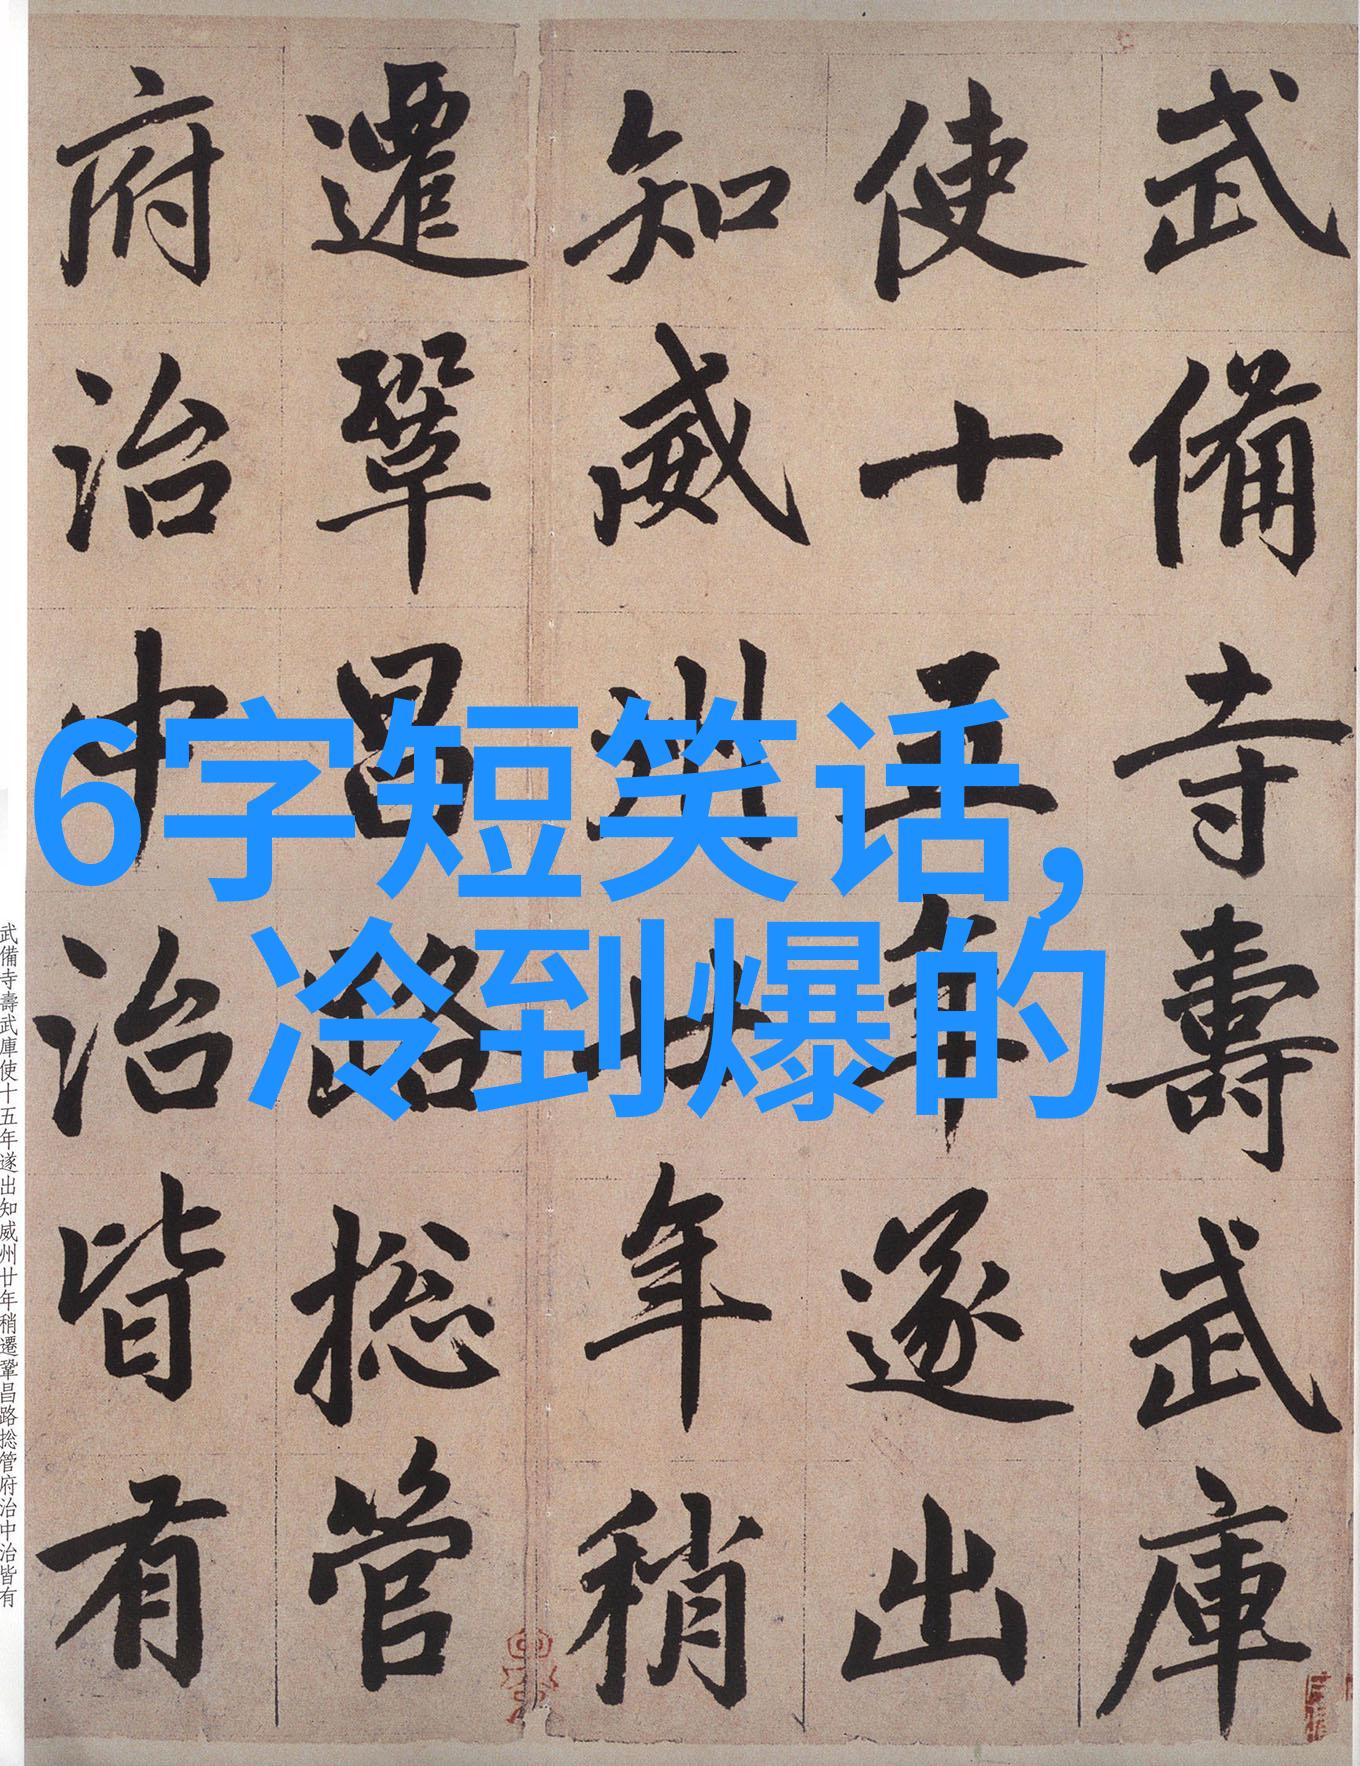 武備寺壽武庫
使十五年遂出
知威州廿年稍
遷鞏昌路捴管
府治中治皆有
6字短笑话,
冷到爆的
武備寺壽武庫使十五年遂出知威州廿年稍遷鞏昌路捴管府治中治皆有